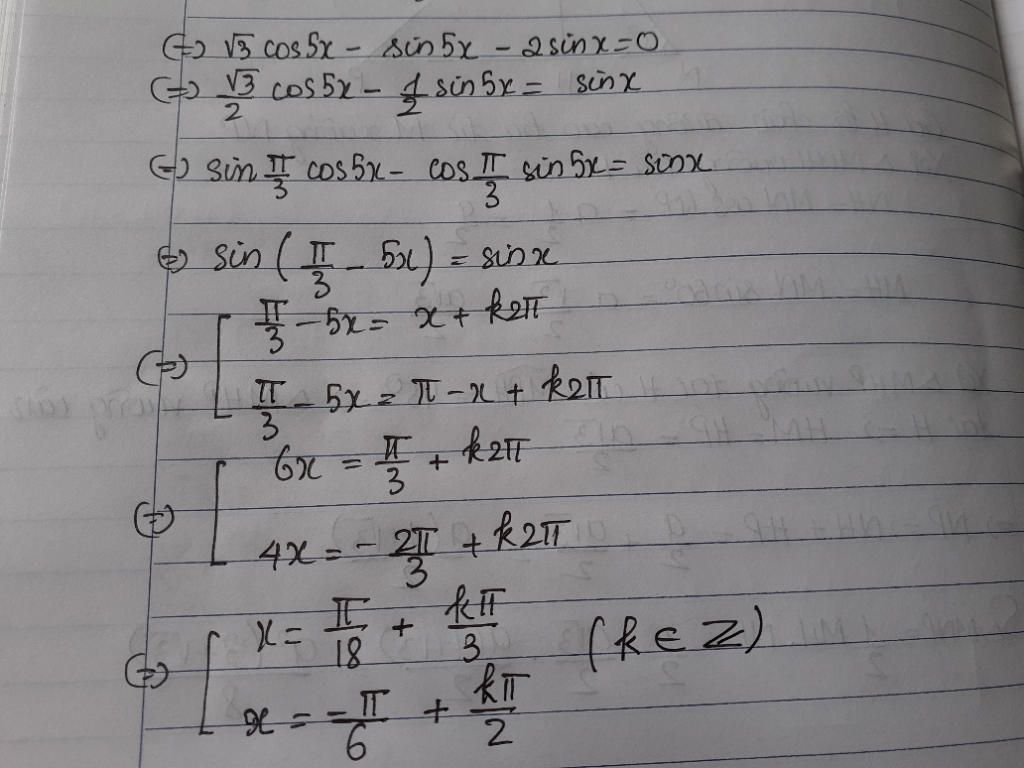 ⇔ √3 cos5x - sin5x - 2sinx = 0
⇔ √3/2 cos5x - 1/2 sin5x = sinx
⇔ sin π/3 cos5x - cos π/3 sin5x = sinx
⇔ sin(π/3 - 5x) = sinx
⇔ [ π/3 - 5x = x + k2π
π/3 - 5x = π - x + k2π
⇔ [ 6x = π/3 + k2π
4x = -2π/3 + k2π
⇔ [ x = π/18 + kπ/3 (k ∈ Z)
x = -π/6 + kπ/2